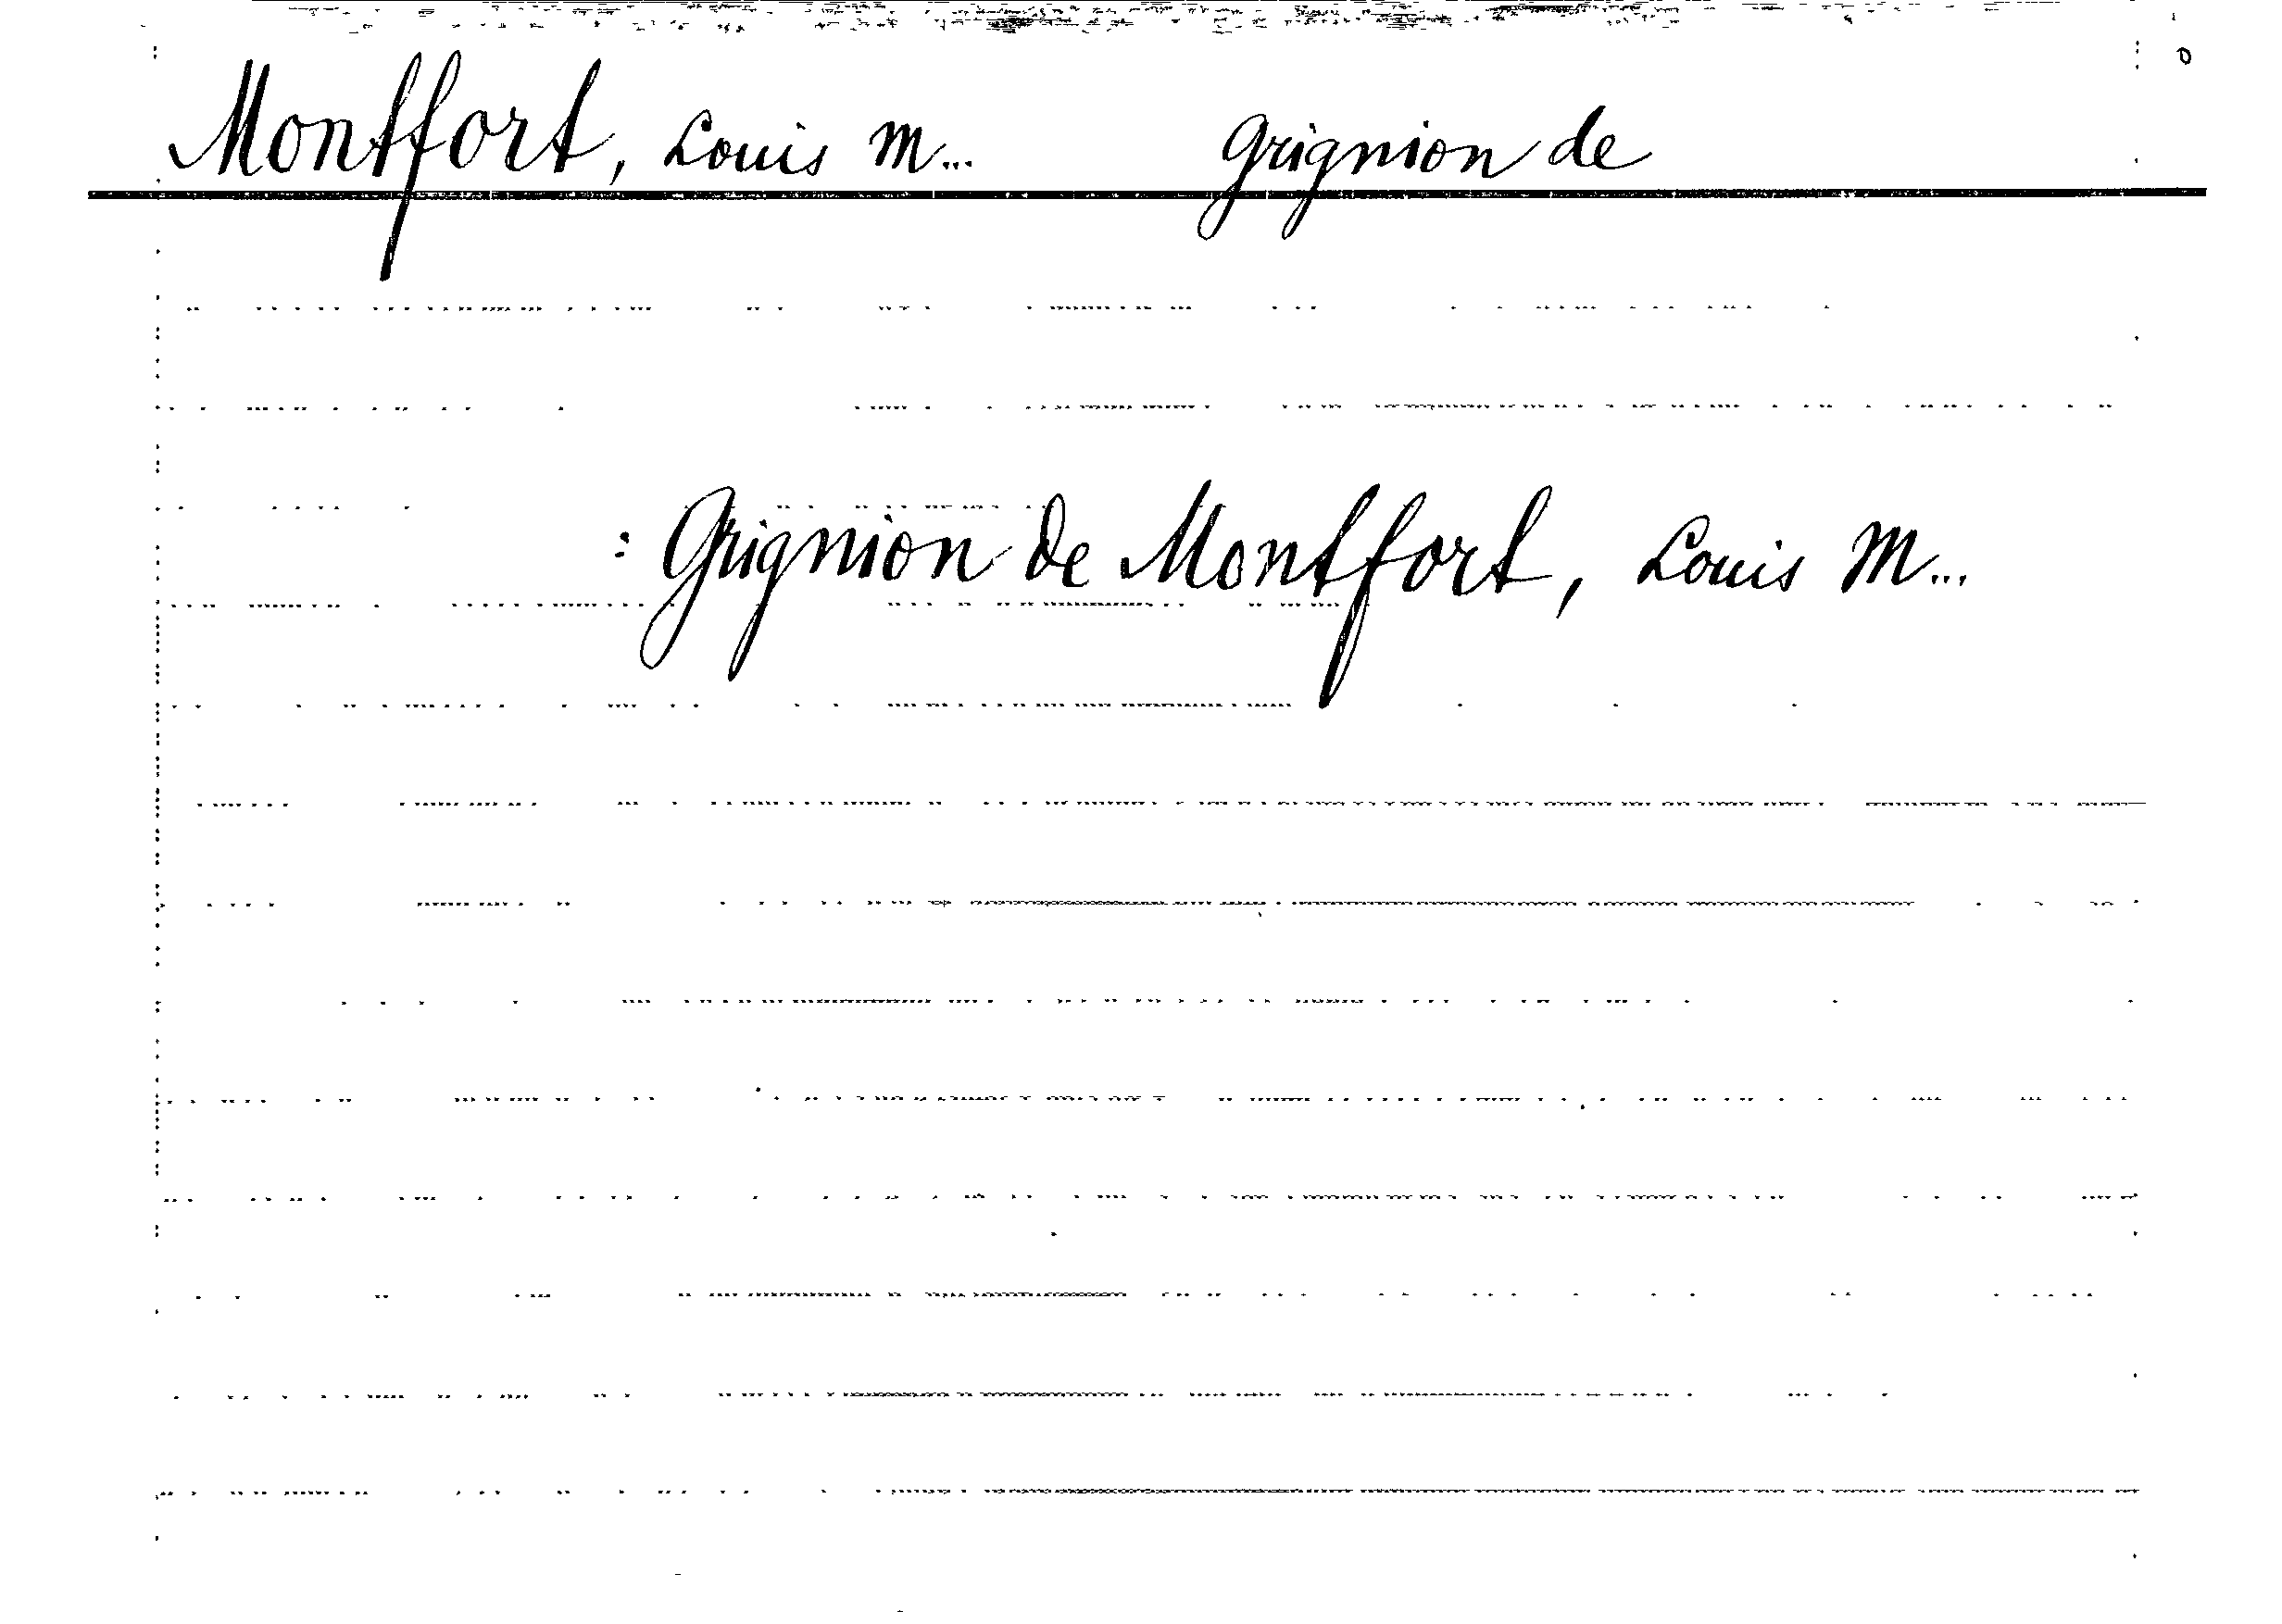 Montfort, Louis M... Grignion de
: Grignion de Montfort, Louis M...